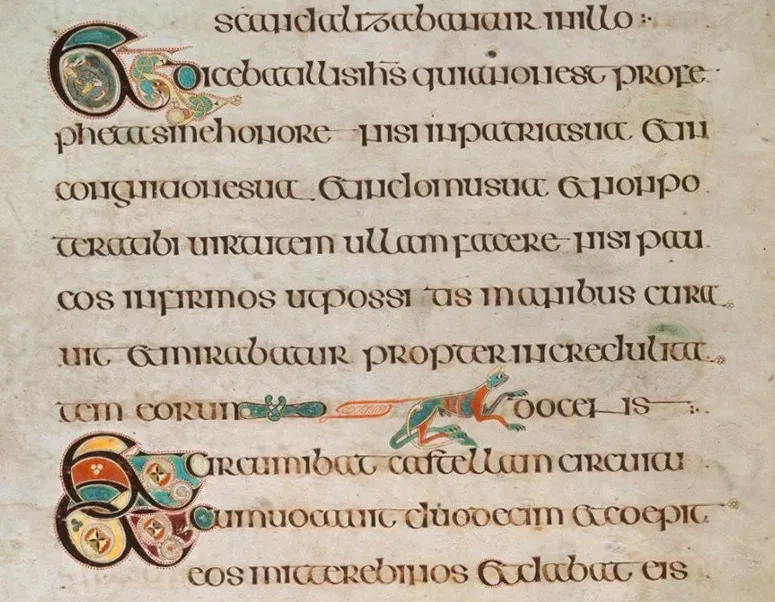 scandalizabantur in illo :·
Et dicebat illis ihs quia non est profe
pheta sine honore nisi in patria sua et in
congnatione sua et in domu sua et non po
terat ibi uirtutem ullam facere nisi pau
cos infirmos utpossi tis manibus cura
uit et mirabatur propter incredulitat
tem eorum docens :·
Et circumibat castella in circuitu
Et conuocauit duodecim et coepit
eos mittere binos et dabat eis